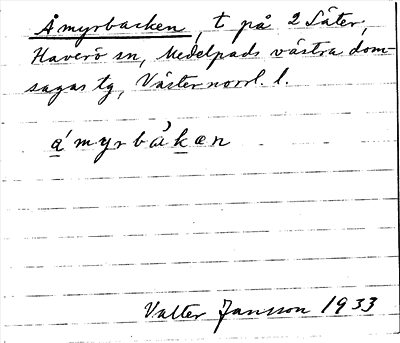 Åmyrbacken, t på 2 Säter,
Haverö sn, Medelpads västra dom-
sagas tg, Västernorrl. l.
a᷄́myrbàkæn
Valter Jansson 1933